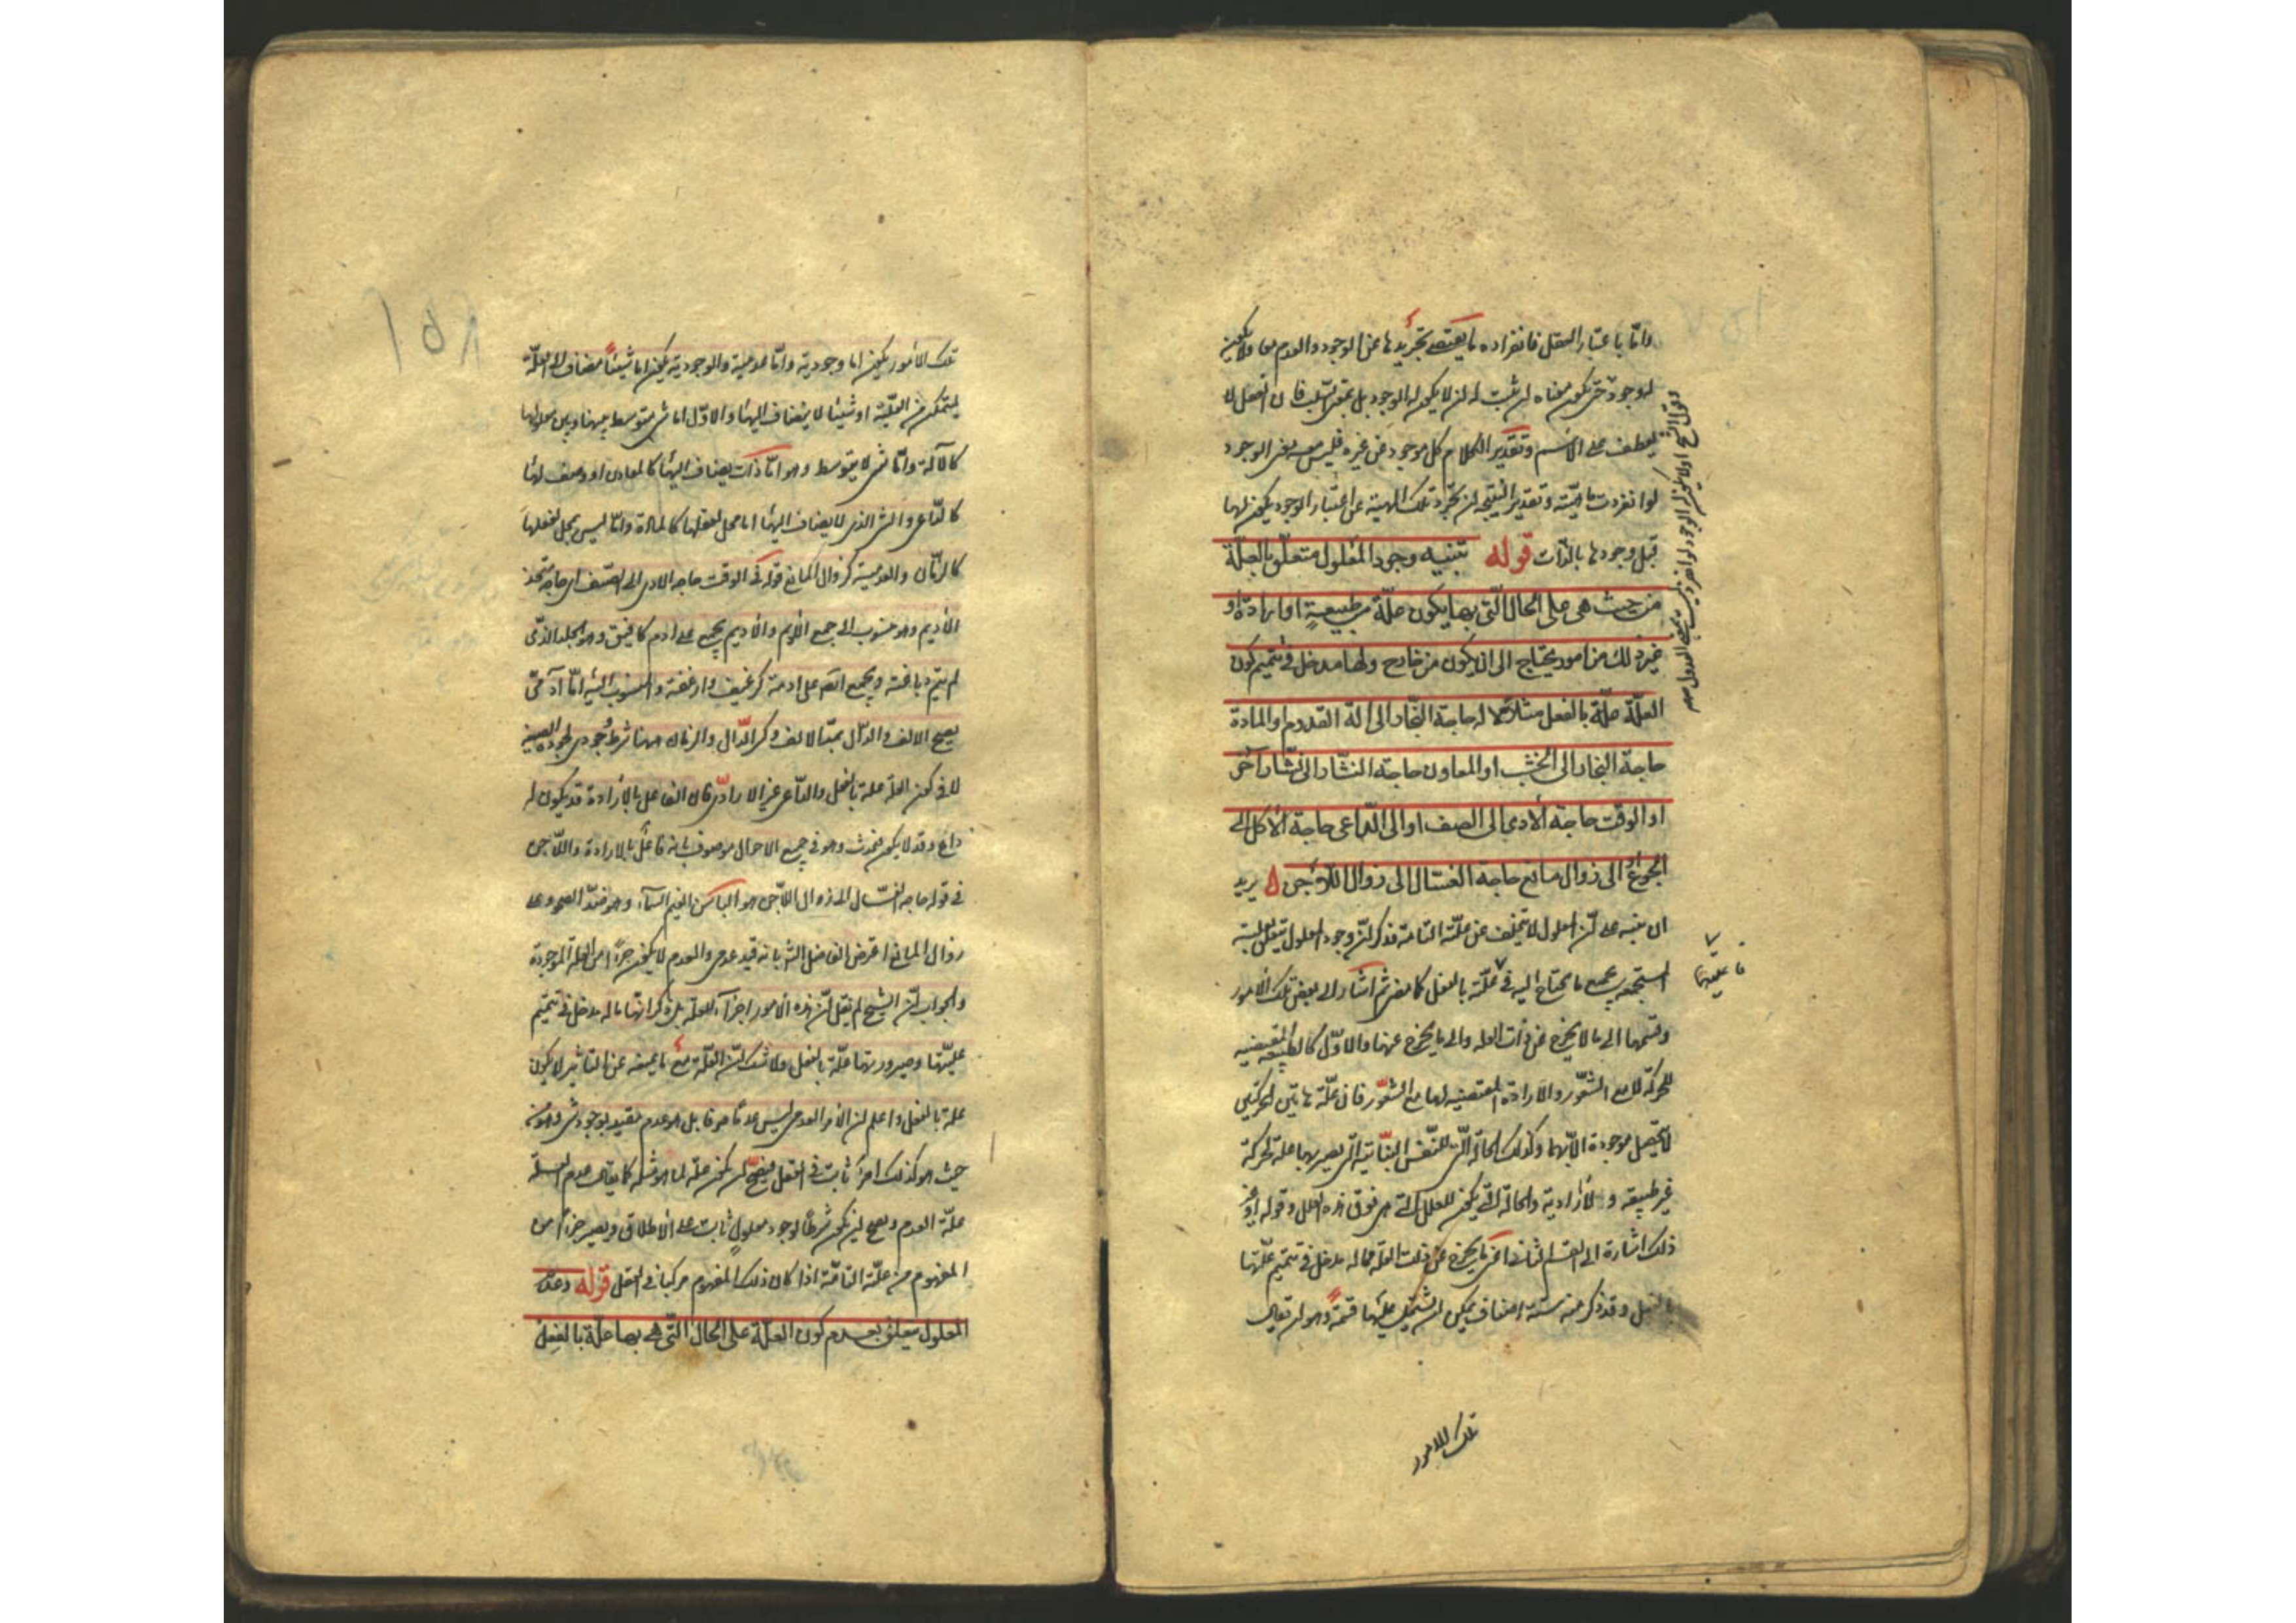 وامّا باعتبار العقل فانفراده يقتضى تجريدها عن الوجود والعدم معا ولا يكون
له وجود حتى يكون معناه ان يثبت له ان لا يكون له الوجود بل بمعنى السلب فان الفعل لا
يعطف على الاسم وتقدير الكلام كل موجود عن غيره فليس معه بغير الوجود
لو انفردت ماهيّته وتقدير النتيجة ان تجرّد تلك المهية عن اعتبار الوجود يكون لها
قبل وجودها بالذات قوله تنبيه وجود المعلول متعلّق بالعلّة
من حيث هى على الحال الّتى بها يكون علّة من طبيعةٍ او ارادة او
غير ذلك من امور يحتاج الى ان يكون من خارج ولها مدخل فى تتميم كون
العلّة علّة بالفعل مثلا الآلة حاجة النجّار الى الة القدوم او المادة
حاجة النجار الى الخشب او المعاون حاجة النشّار الى نشّار آخر
او الوقت حاجة الآدمى الى الصيف او الى الدّاعى حاجة الآكل الى
الجوع او الى زوال مانع حاجة الغسّال الى زوال الدّجن ه يريد
ان ينبه على انّ المعلول لا يتخلف عن علّته التامة فذكر انّ وجود المعلول يتعلق بعلّته
المستجمعة جميع ما يحتاج اليه فى علّته بالفعل كما مضى ثم اشار الى بعض تلك الامور
وقسمها الى ما لا يخرج عن ذات العلة والى ما يخرج عنها والاوّل كالطبيعة المقتضيه
للحركة لا مع الشّعور والارادة المقتضيه لها مع الشّعور فان علّة هاتين الحركتين
لا تحصل موجودة الّا بهما وكذلك الحالة الّتى للنّفس النّباتية الّتى يصير بها علة لحركة
غير طبيعية ولا ارادية والحالة الّتى يكون للعلل الّتى هى فوق هذه العلل وقوله او غير
ذلك اشارة الى القسم الثانى اعنى ما يخرج عن ذات العلّة مما له مدخل فى تتميم علّتها
بالفعل وقد ذكر منه ستة اصناف يمكن ان يشتمل عليها قسمة وهو ان يقال
فاعليّتها
تلك الامور
تلك الامور يكون اما وجودية وامّا عدمية والوجودية يكون اما شيئاً يضاف الى العلّة
ليتمكن من العلّية او شيئا لا ينضاف اليها والاوّل اما شى يتوسط بينها وبين معلولها
كالآلة وامّا شى لا يتوسط وهو امّا ذات ينضاف اليها كالمعاون او وصف لها
كالدّاعى والشى الذى لا ينضاف اليها اما محل لفعلها كالمادة وامّا ليس بمحل لفعلها
كالزمان والعدمية كزوال المانع قوله فى الوقت حاجة الادمى الى الصيف اى حاجة متخذ
الأديم وهو منسوب الى جمع الأديم والأديم يجمع على ادم كافيق وهو الجلد الذى
لم يتم دباغته ويجمع ايضا على ادمة كرغيف وارغفة والمنسوب اليه امّا آدمىّ
بفتح الالف والدال بمدّ الالف وكسر الدّال والزمان ههنا شرط وجودى لجودة الصنع
لا فى كون العلة علة بالفعل والداعى غير الارادة فان الفاعل بالارادة قد يكون له
داع وقد لا يكون وهو فى جميع الاحوال موصوف بانه فاعل بالارادة والدّجن
فى قوله حاجة الغسّال الى زوال الدّجن هو الباس الغيم السّماء وهو ضدّ الصحو وعلى
زوال المانع اعترض الفاضل الشارح بانه قيد عدمى والعدم لا يكون جزءا من العلة الموجودة
والجواب انّ الشيخ لم يقل انّ هذه الامور اجزآء للعلّة بل ذكر انها ما له مدخل فى تتميم
علّيّتها وصيرورتها علّة بالفعل ولا شك انّ العلّة مع ما يمنعه عن التاثير لا يكون
علة بالفعل واعلم ان الامر العدمى ليس عدما صرفا بل هو عدم مقيد بوجود شى وهو من
حيث هو كذلك امر ثابت فى العقل فيصحّ ان يكون علّة لما هو مثله كما يقال عدم العلّة
علّة العدم ويصح ان يكون شرطا لوجود معلول ثابت على الاطلاق ويصير جزءا من
المفهوم من علّته التامّة اذا كان ذلك المفهوم مركبا فى العقل قوله وعدم
المعلول متعلق بعدم كون العلّة على الحال الّتى هى بها علّة بالفعل